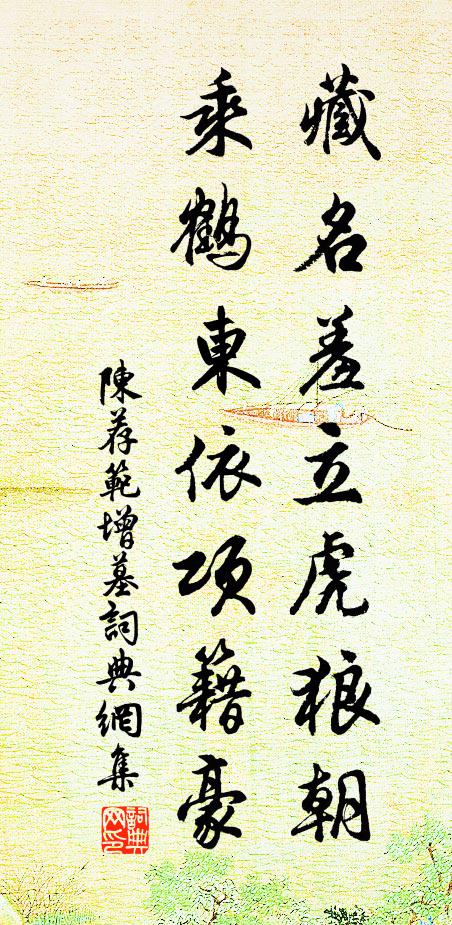 藏名羞立虎狼朝
乘鶴東依項籍豪
陳荐範增墓詞典網集
詞典
网印